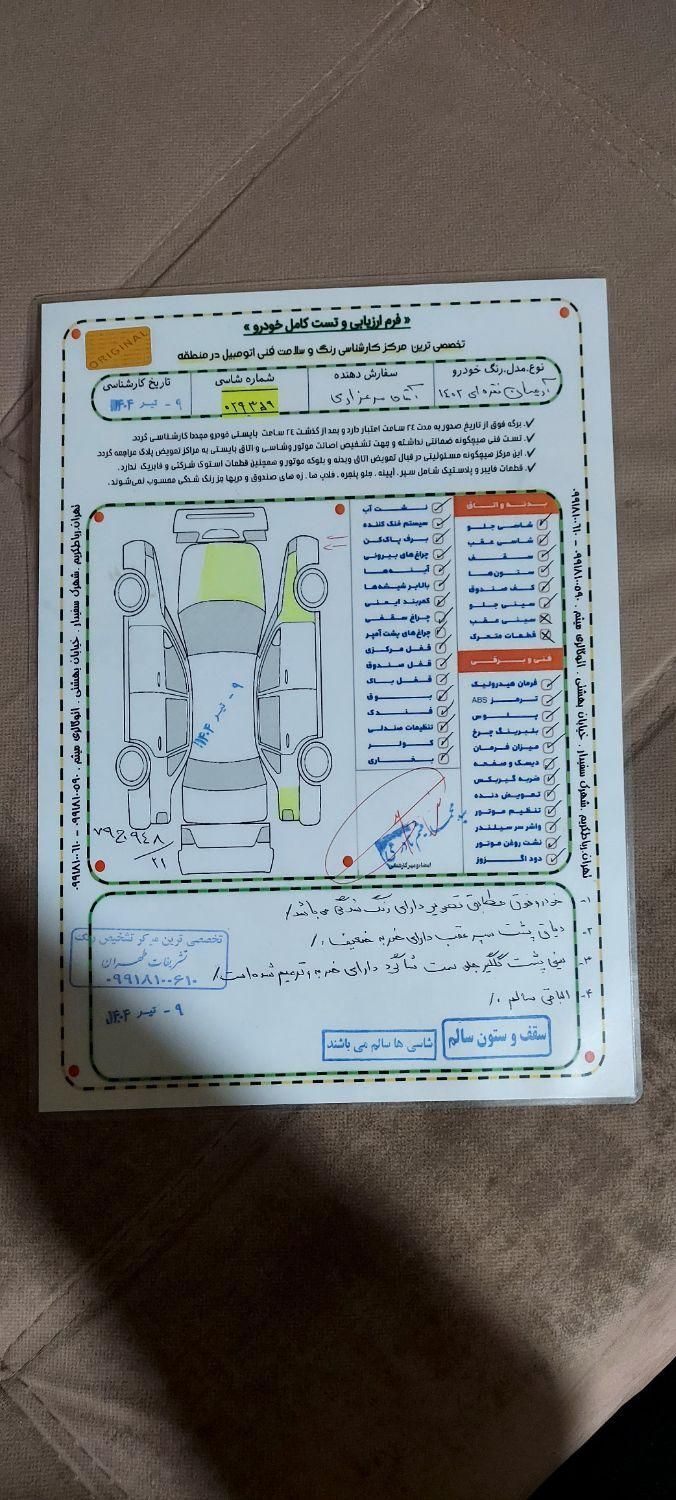 « فرم ارزیابی و تست کامل خودرو »
تخصصی ترین مرکز کارشناسی رنگ و سلامت فنی اتومبیل در منطقه
ORIGINAL
نوع،مدل،رنگ خودرو
سفارش دهنده
شماره شاسی
تاریخ کارشناسی
آریسان نقره ای ۱۴۰۲
آقای
۰۲۹۳۵۹
۹ - تیر ۱۴۰۴
✓ برگه فوق از تاریخ صدور به مدت ۲٤ ساعت اعتبار دارد و بعد از گذشت ۲٤ ساعت بایستی خودرو مجددا کارشناسی گردد
✓ تست فنی هیچگونه ضمانتی نداشته و جهت تشخیص اصالت موتور وشاسی و اتاق بایستی به مراکز تعویض پلاک مراجعه گردد
✓ این مرکز هیچگونه مسئولیتی در قبال تعویض اتاق وبدنه و بلوکه موتور و همچنین قطعات استوک شرکتی و فابریک ندارد.
✓ قطعات فایبر و پلاستیک شامل سپر، آیینه، جلو پنجره، فلاپ ها، زه های صندوق و دربها جز رنگ شدگی محسوب نمی‌شوند.
بدنه و اتاق
شاسی جلو
شاسی عقب
سقف
ستون‌ها
کف صندوق
سینی جلو
سینی عقب
قطعات متحرک
فنی و برقی
فرمان هیدرولیک
ترمز ABS
پلوس
بلبرینگ چرخ
میزان فرمان
دیسک و صفحه
ضربه گیربکس
تعویض دنده
تنظیم موتور
واشر سر سیلندر
نشت روغن موتور
دود اگزوز
نشت آب
سیستم خنک کننده
برف پاک‌کن
چراغ‌های بیرونی
آینه‌ها
بالابر شیشه‌ها
کمربند ایمنی
چراغ سقفی
چراغ‌های پشت آمپر
قفل مرکزی
قفل صندوق
قفل باک
بوق
فندک
تنظیمات صندلی
کولر
بخاری
امضاء و مهر کارشناس
۹ - تیر ۱۴۰۴
۷۹ج۹۴۸
۲۱
تهران،رباطکریم .شهرک سفیدار . خیابان بهشتی . اتوگالری میثم . ۰۹۹۱۸۱۰۰۵۹۰ – ۰۹۹۱۸۱۰۰۶۱۰
تهران،رباطکریم .شهرک سفیدار . خیابان بهشتی . اتوگالری میثم . ۰۹۹۱۸۱۰۰۵۹۰ – ۰۹۹۱۸۱۰۰۶۱۰
۱- خودرو فوق مطابق تصویر دارای رنگ شدگی می باشد/
۲- دیاق پشت سپر عقب دارای ضربه ضعیف ./
۳- سینی پشت گلگیر جلو سمت شاگرد دارای ضربه و ترمیم شده است/
۴- الباقی سالم ./
تخصصی ترین مرکز تشخیص رنگ
تشریفات طهران
۰۹۹۱۸۱۰۰۶۱۰
۹ - تیر ۱۴۰۴
سقف و ستون سالم
شاسی ها سالم می باشند